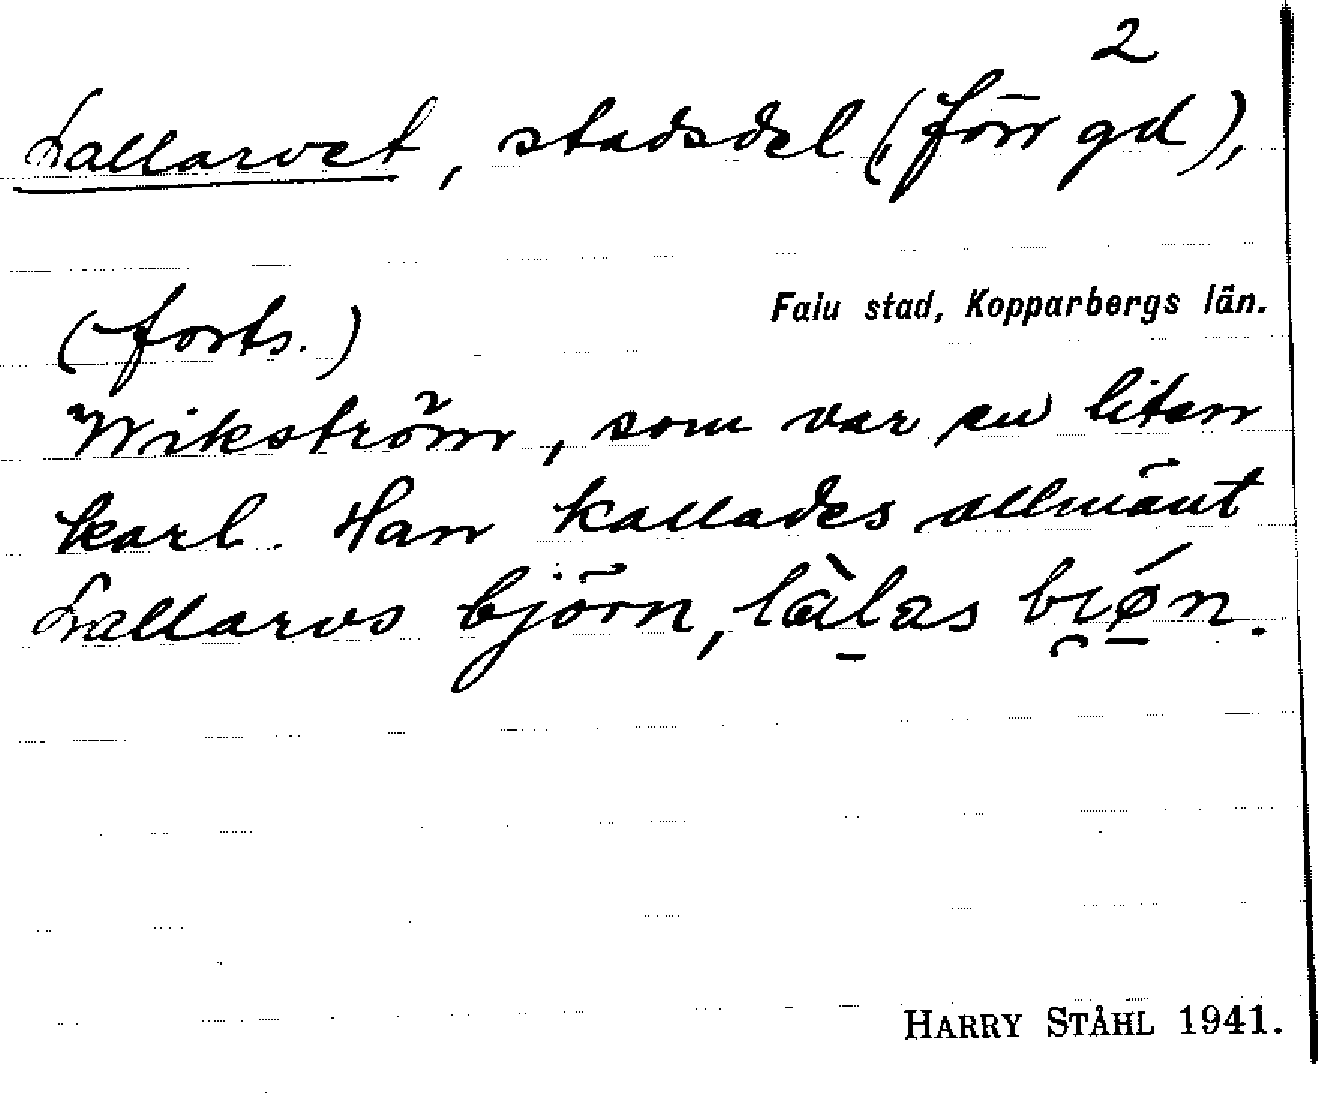 2
Lallarvet, stadsdel (förr gd),
Falu stad, Kopparbergs län.
(forts.)
Wikström, som var en liten
karl. Han kallades allmänt
Lallarvs björn, làlas bi̯ǿn.
HARRY STÅHL 1941.